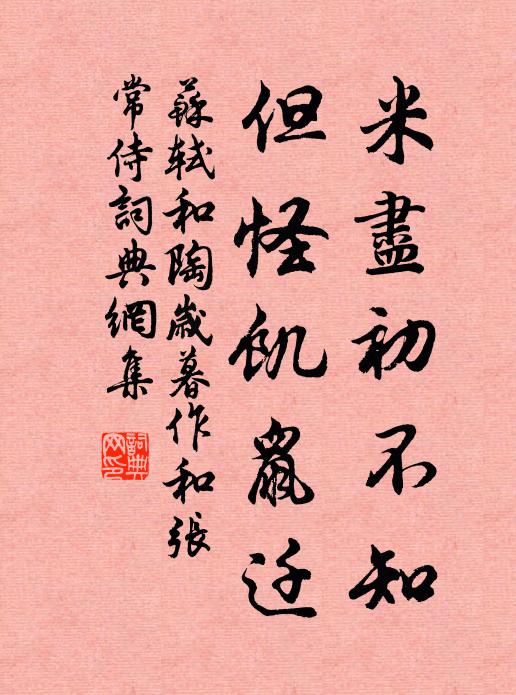 米盡初不知
但怪飢鼠迁
蘇軾和陶歲暮作和張
常侍詞典網集
詞典网印